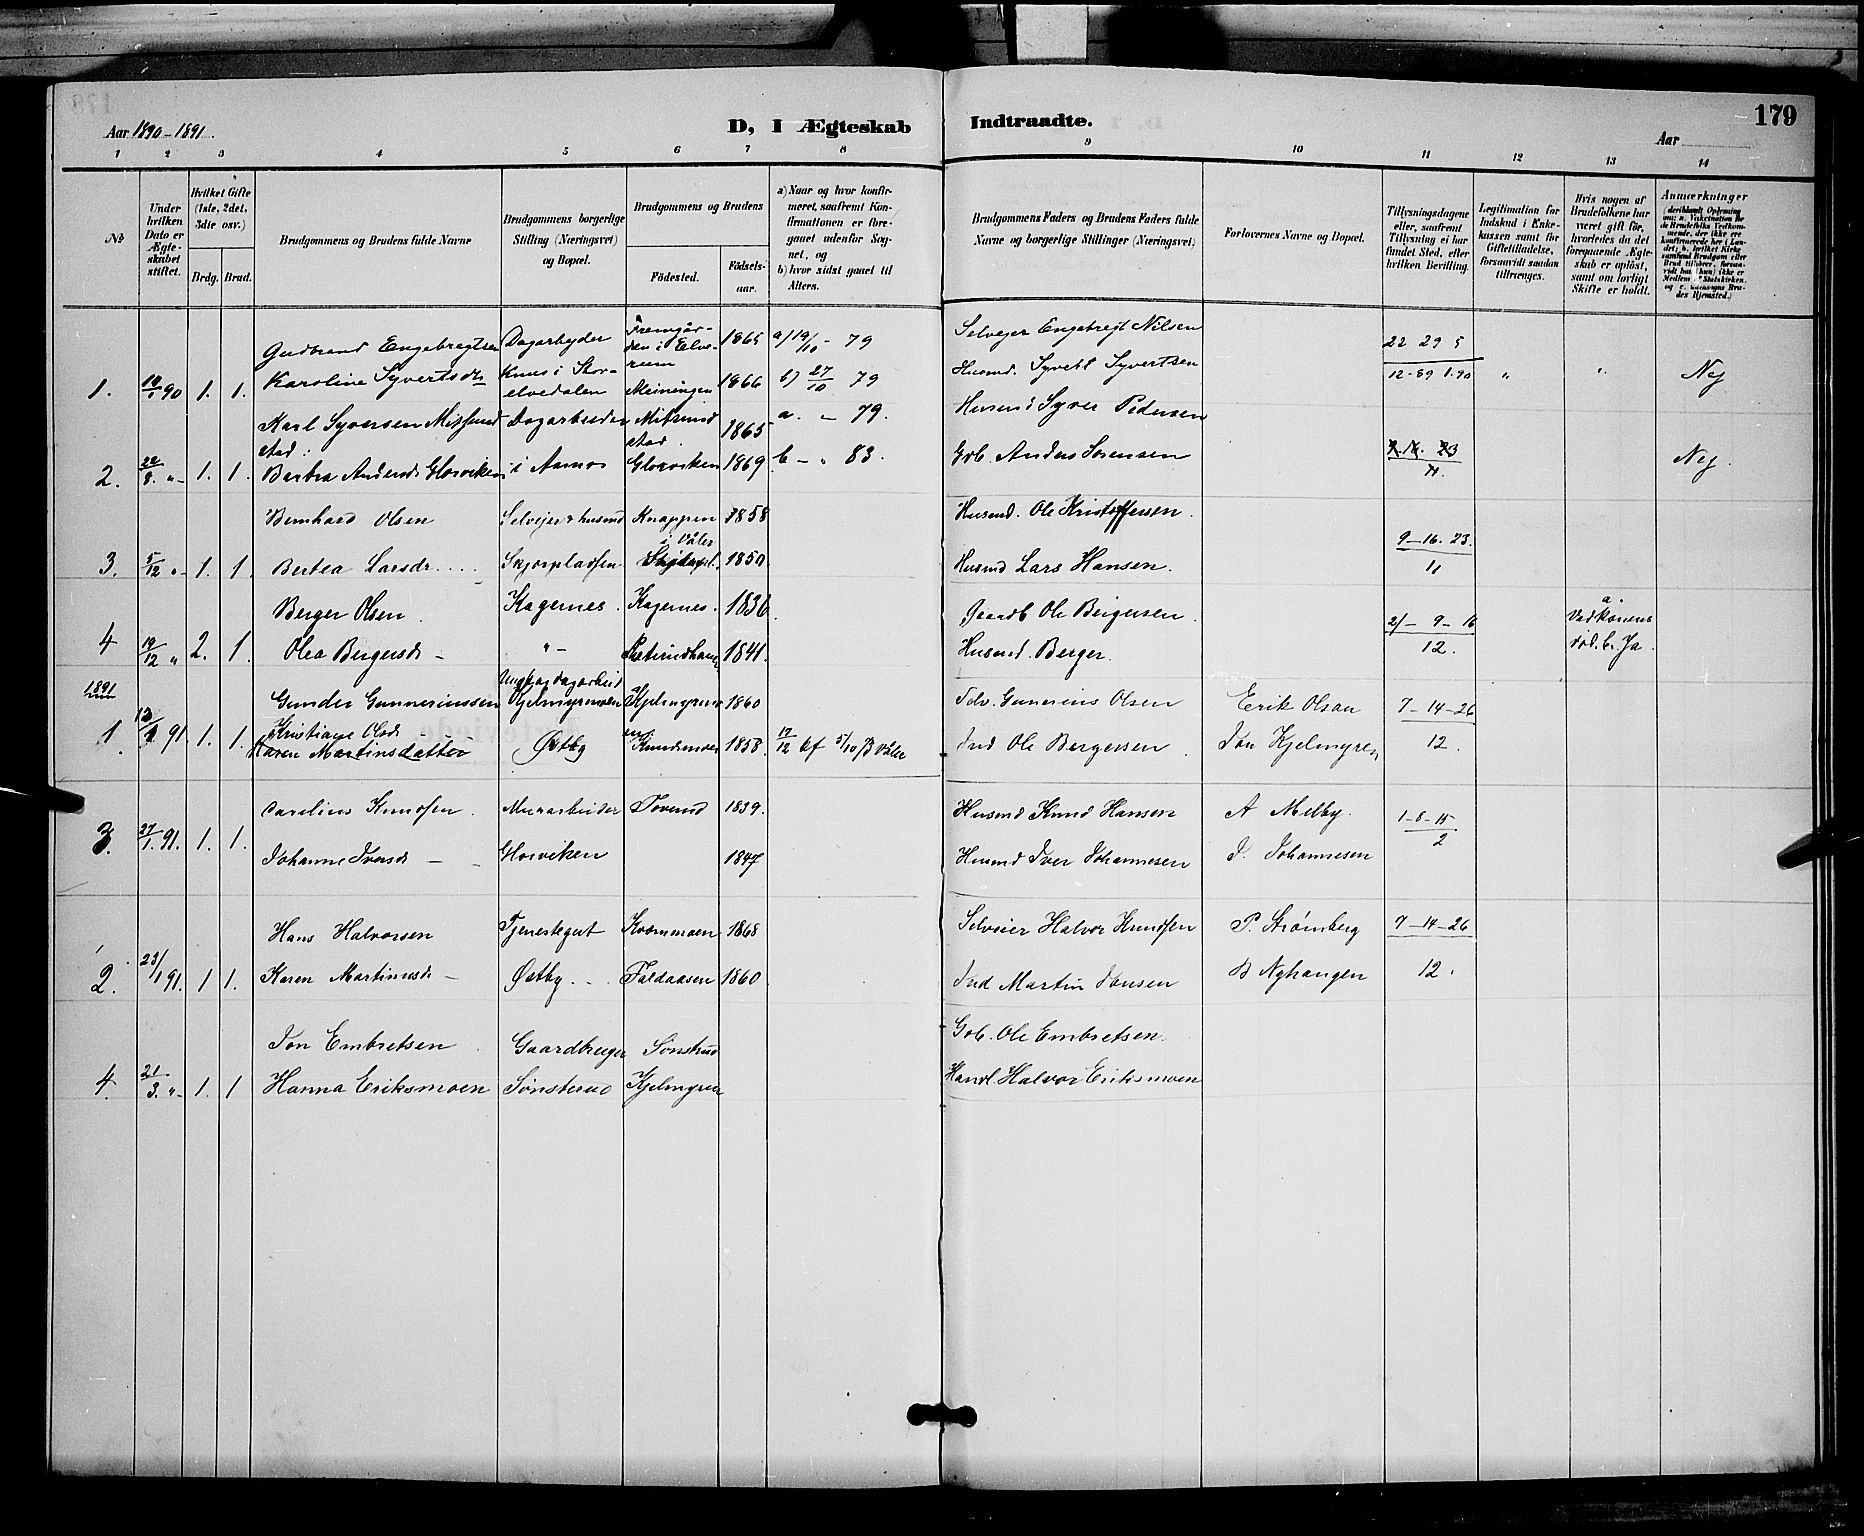 179
Aar 1890-1891.
D, I Ægteskab Indtraadte.
Aar
1 2 3 4 5 6 7 8 9 10 11 12 13 14
No
Under hvilken Dato er Ægteskabet stiftet.
Hvilket Gifte (1ste, 2det, 3die osv.)
Brdg. Brud.
Brudgommens og Brudens fulde Navne
Brudgommens borgerlige Stilling (Næringsvei) og Bopæl.
Brudgommens og Brudens
Födested. Födselsaar.
a) Naar og hvor konfirmeret, saafremt Konfirmationen er foregaaet udenfor Sognet, og
b) hvor sidst gaaet til Alters.
Brudgommens Faders og Brudens Faders fulde Navne og borgerlige Stillinger (Næringsvei)
Forlovernes Navne og Bopæl.
Tillysningsdagene eller, saafremt Tillysning ei har fundet Sted, efter hvilken Bevilling.
Legitimation for Indskud i Enkekassen samt for Giftetilladelse, forsaavidt saadan tiltrænges.
Hvis nogen af Brudefolkene har været gift før, hvorledes da det foregaaende Ægteskab er opløst, samt om lovligt Skifte er holdt.
Anmærkninger
Gudbrand Engebregtsen Dagarbeyder 1865 a) 19/10 - 79 Selveyer Engebregt Nilsen 22 29 5
1. 90 1. 1. Karoline Syvertsdtr Knus i Storelvedalen Meiningen 1866 b) 27/10 79 Husmd. Syvert Syvertsen 12-89 1.90 " " Nej
Karl Syversen Mitsundstad. Dagarbeider Mitsundstad 1865 a. " 79. Husmd Syver Pedersen
2. 22/8 " 1. 1. Bertea Andersd. Glorviken i Aamos Glorviken 1869 b - " 83. Grb. Anders Sørensen 11. Nej.
Bernhard Olsen Selveier & husmd Knappen i Våler 1858 Husmd. Ole Kristoffersen.
3. 5/12 " 1. 1. Bertea Larsdr. Skjærpladsen 1850. Husmd Lars Hansen. 9-16. 23. 11
Berger Olsen Kagernes. Kagernes. 1836 Gaardb Ole Bergersen 21- 9- 16 a. Ved konens
4 19/12 " 2. 1. Olea Bergersdr - " - 1841. Husmd. Berger. 12. død. b. Ja.
1891
Gunder Gunneriussen Ungkar dagarbeid Kjelmyrmoen Kjelmyren 1860 Selv. Gunerius Olsen Erik Olsen 7-14-26
1. 91. 1. 1. Kristiane Olsd Karen Martinsdatter Østby Knudsmoen 1858. 12/12 kf 5/10 73 Våler Ind Ole Bergersen Jon Kjelmyren 12.
Carelius Knudsen Murarbeider Sorend 1839. Husmd Knud Hansen A Melby. 1-8-15
3. 27/1. 91. 1. 1. Johanne Iversdr - Glorviken 1847 Husmd Iver Johannesen J. Johannesen 2
Hans Halvorsen Tjenestegut Kvernmoen 1868 Selveier Halvor Knudsen P. Strømberg 7-14-26
2. 23/1 91. 1 1. Karen Martinusdr - Østby Faldaasen 1860 Ind Martin Jonsen B Nyhangen 12.
Jon Embretsen Gaardbruger Sønsterud Grb. Ole Embretsen.
4. 21/3. " 1. 1 Hanna Eriksmoen Sønsterud Kjelmyren Handl. Halvor Eriksmoen